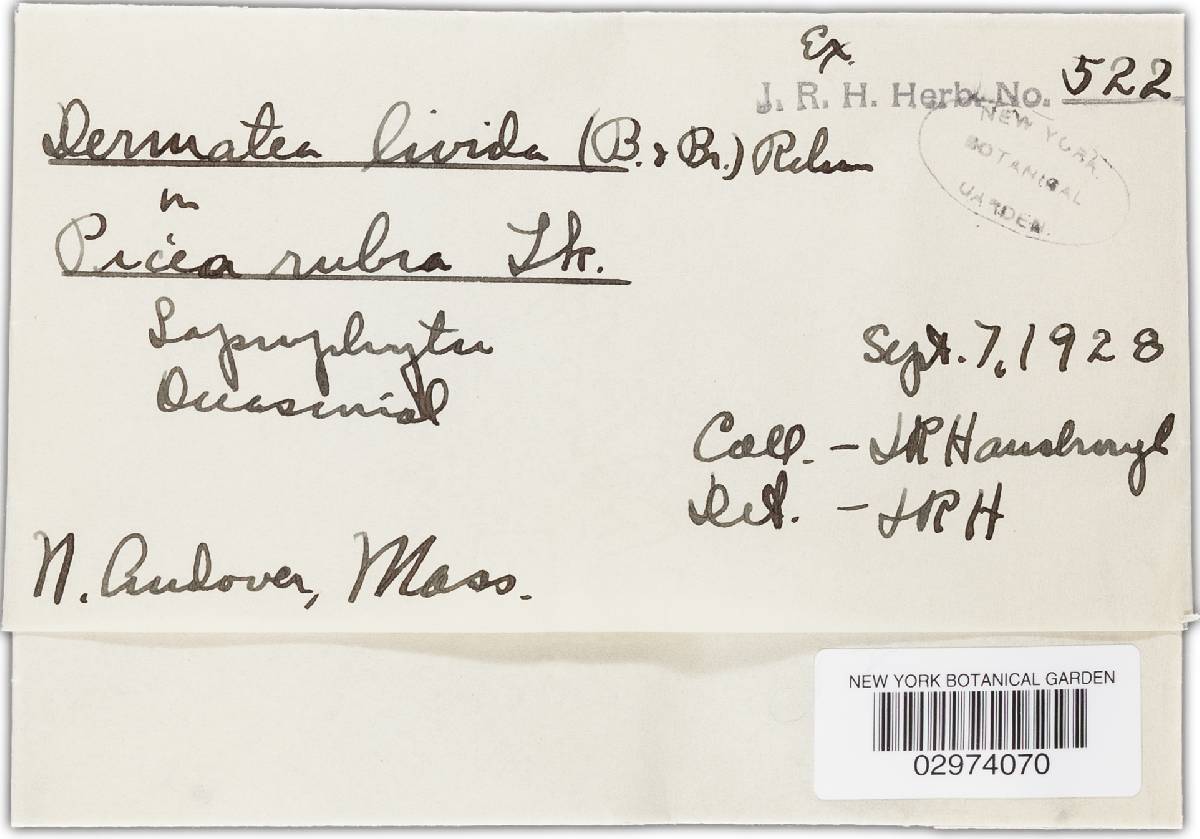 Ex.
J. R. H. Herb. No. 522
NEW YORK
BOTANICAL
GARDEN.
Dermatea livida (B. & Br.)
on
Picea rubra Lk.
Saprophytic
Sept. 7, 1928
Coll. - JR Hansbrough
Det. - JRH
N. Andover, Mass.
NEW YORK BOTANICAL GARDEN
02974070